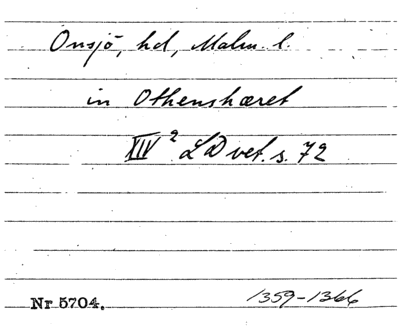 Onsjö, hd, Malm. l.
in Othenshæret
XIV² LD vet. s. 72
Nr 5704. 1359-1366